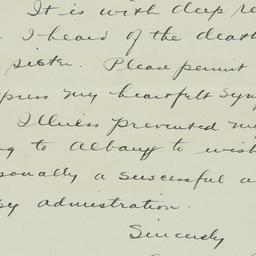 It is with deep re
I heard of the death
sister. Please permit
press my heartfelt sym
Illness prevented m
g to Albany to wish
sonally a successful a
py admistration.
Sincerely